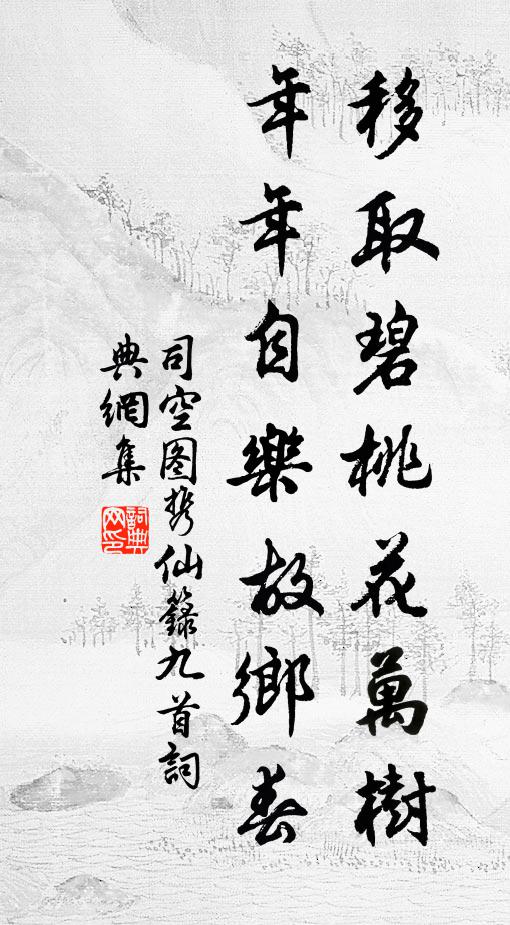 移取碧桃花萬樹
年年自樂故鄉春
司空图携仙籙九首詞
典網集
詞典
网印